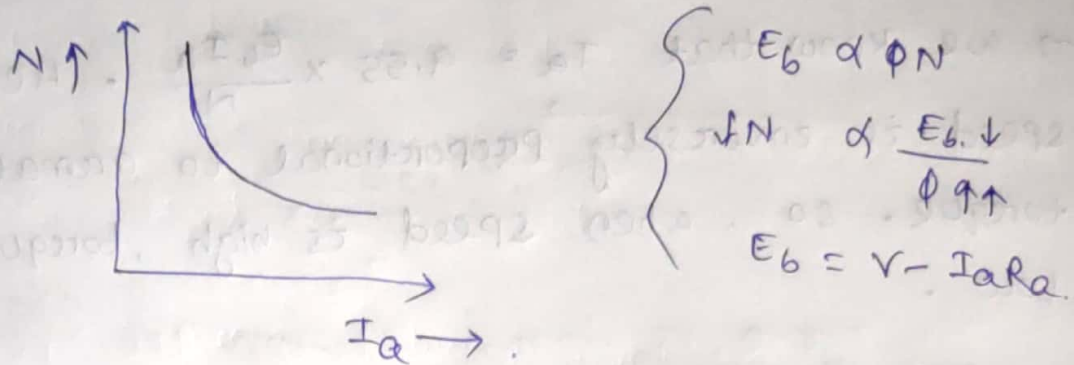 N ↑
I_a →
E_b ∝ ϕN
↓N ∝ E_b ↓ / ϕ ↑↑
E_b = V - I_a R_a.